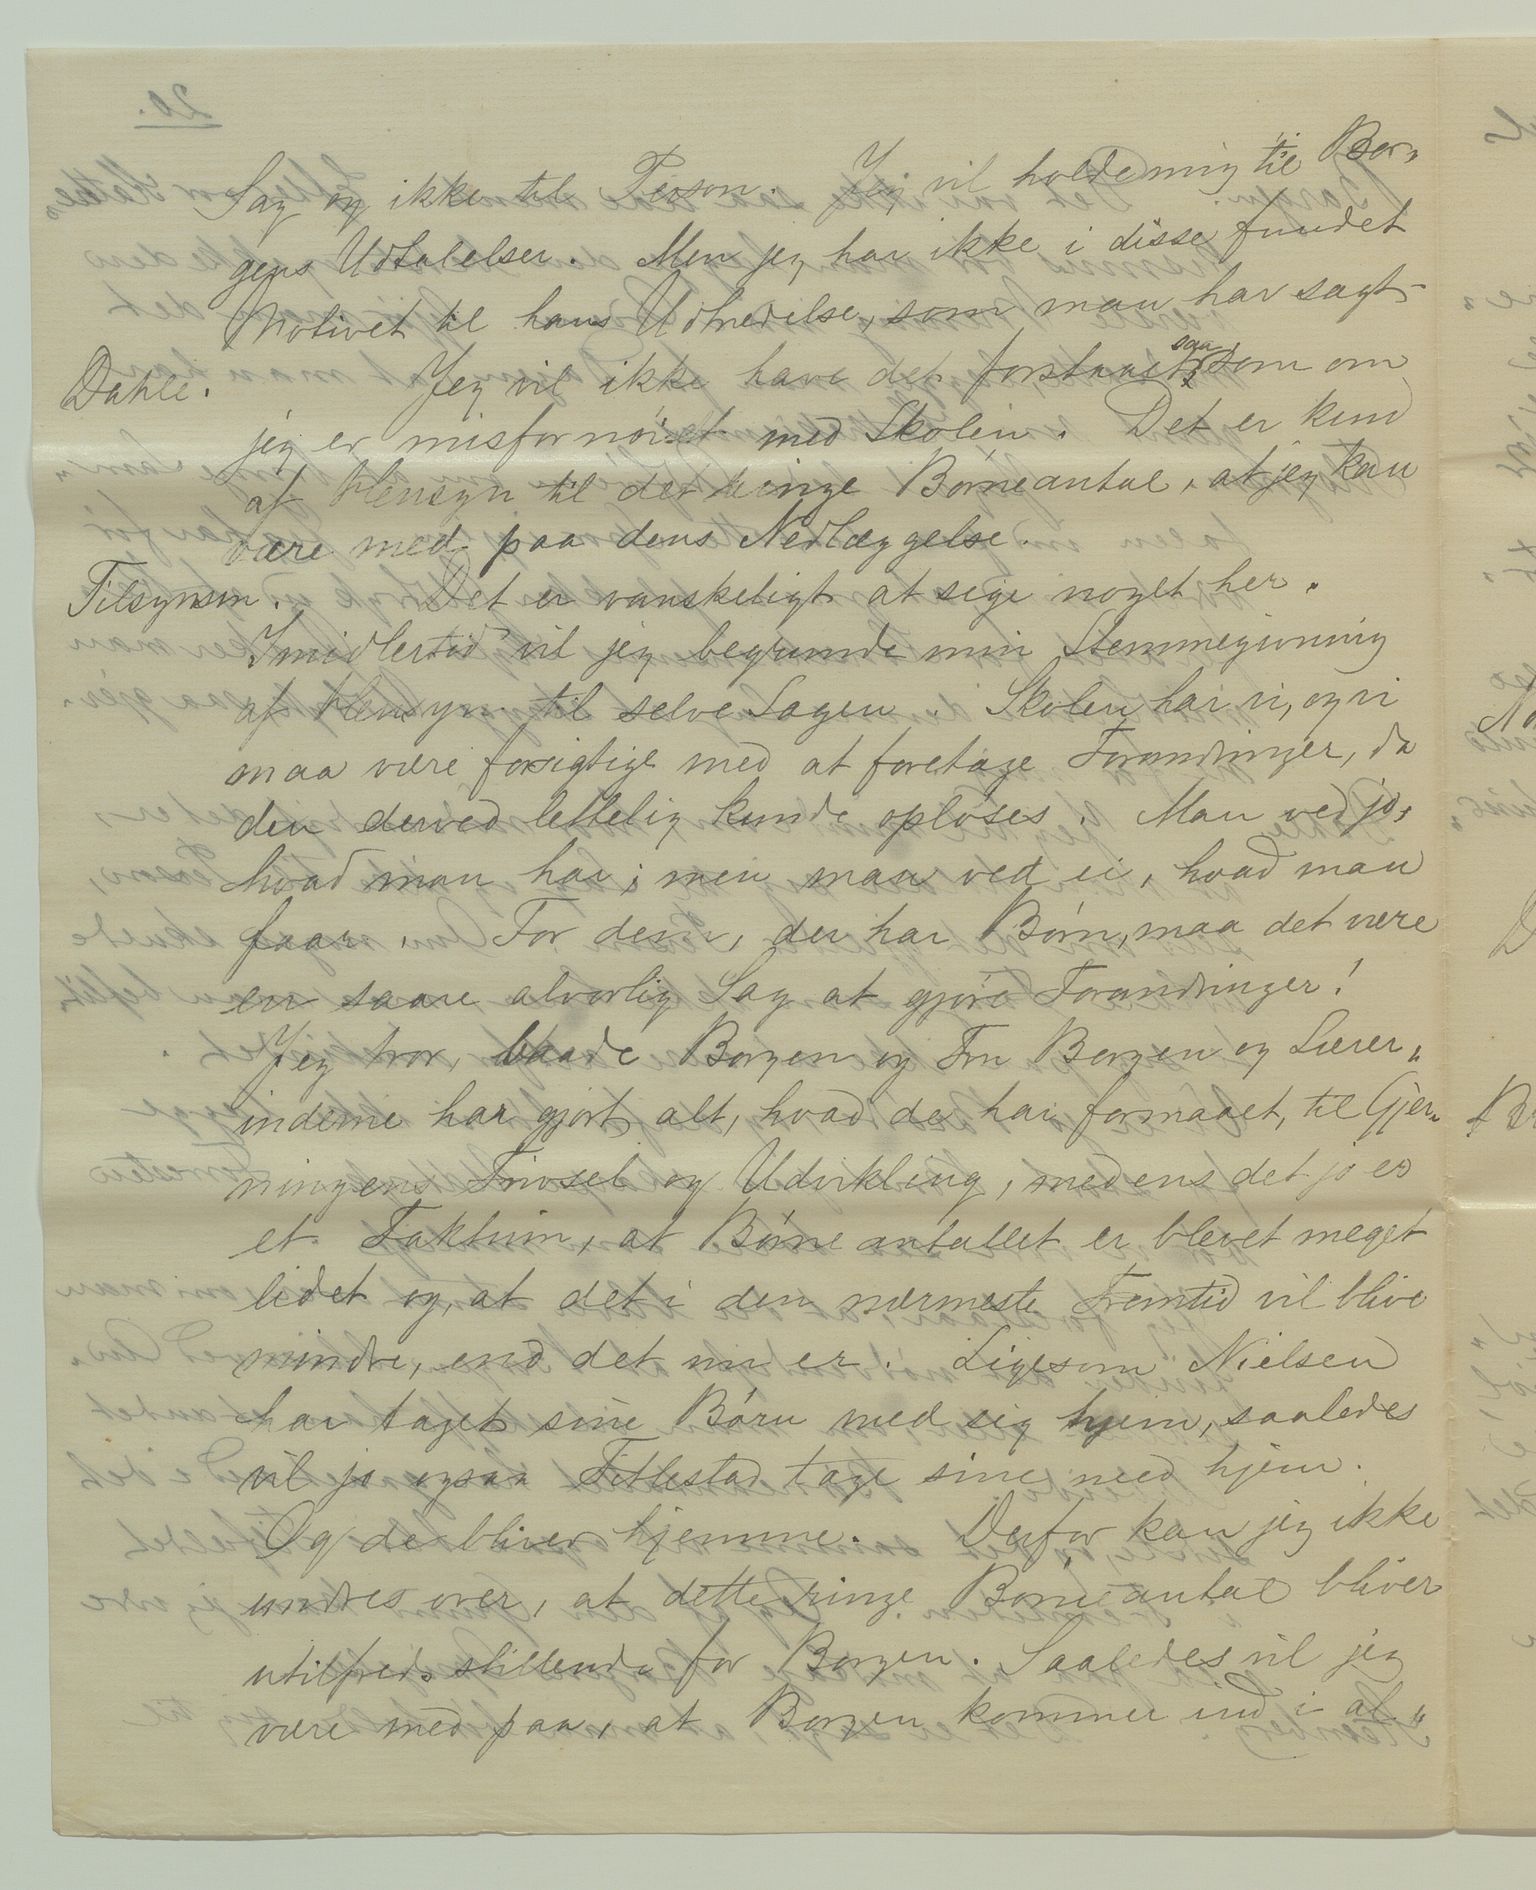 Sag og ikke til Person. Jeg vil holde mig til Bor„
gens Udtalelser. Men jeg har ikke i disse fundet
Motivet til hans Udtrædelse, som man har sagt
Dahle. Jeg vil ikke have det forstaaet saa, som om
jeg er misfornöiet med Skolen. Det er kun
af Hensyn til det ringe Börneantal, at jeg kan
være med paa dens Nedlæggelse.
Tilsynsm. Det er vanskeligt at sige noget her.
Imidlertid vil jeg begrunde min Stemmegivning
af Hensyn til selve Sagen. Skolen har vi, og vi
maa være forsigtige med at foretage Forandringer, da
den derved lettelig kunde oplöses. Man ved jo,
hvad man har; men man ved ei, hvad man
faar. For dem, der har Börn, maa det være
en saare alvorlig Sag at gjöre Forandringer!
Jeg tror, baade Borgen og Fru Borgen og Lærer„
inderne har gjort alt, hvad de har formaaet, til Gjer„
ningens Trivsel og Udvikling, medens det jo er
et Faktum, at Börneantallet er blevet meget
lidet og, at det i den nærmeste Fremtid vil blive
mindre, end det nu er. Ligesom Nielsen
har taget sine Börn med sig hjem, saaledes
vil jo ogsaa Fittestad tage sine med hjem.
Og de bliver hjemme. Derfor kan jeg ikke
undres over, at dette ringe Börneantal bliver
utilfredsstillende for Borgen. Saaledes vil jeg
være med paa, at Borgen kommer ind i al„